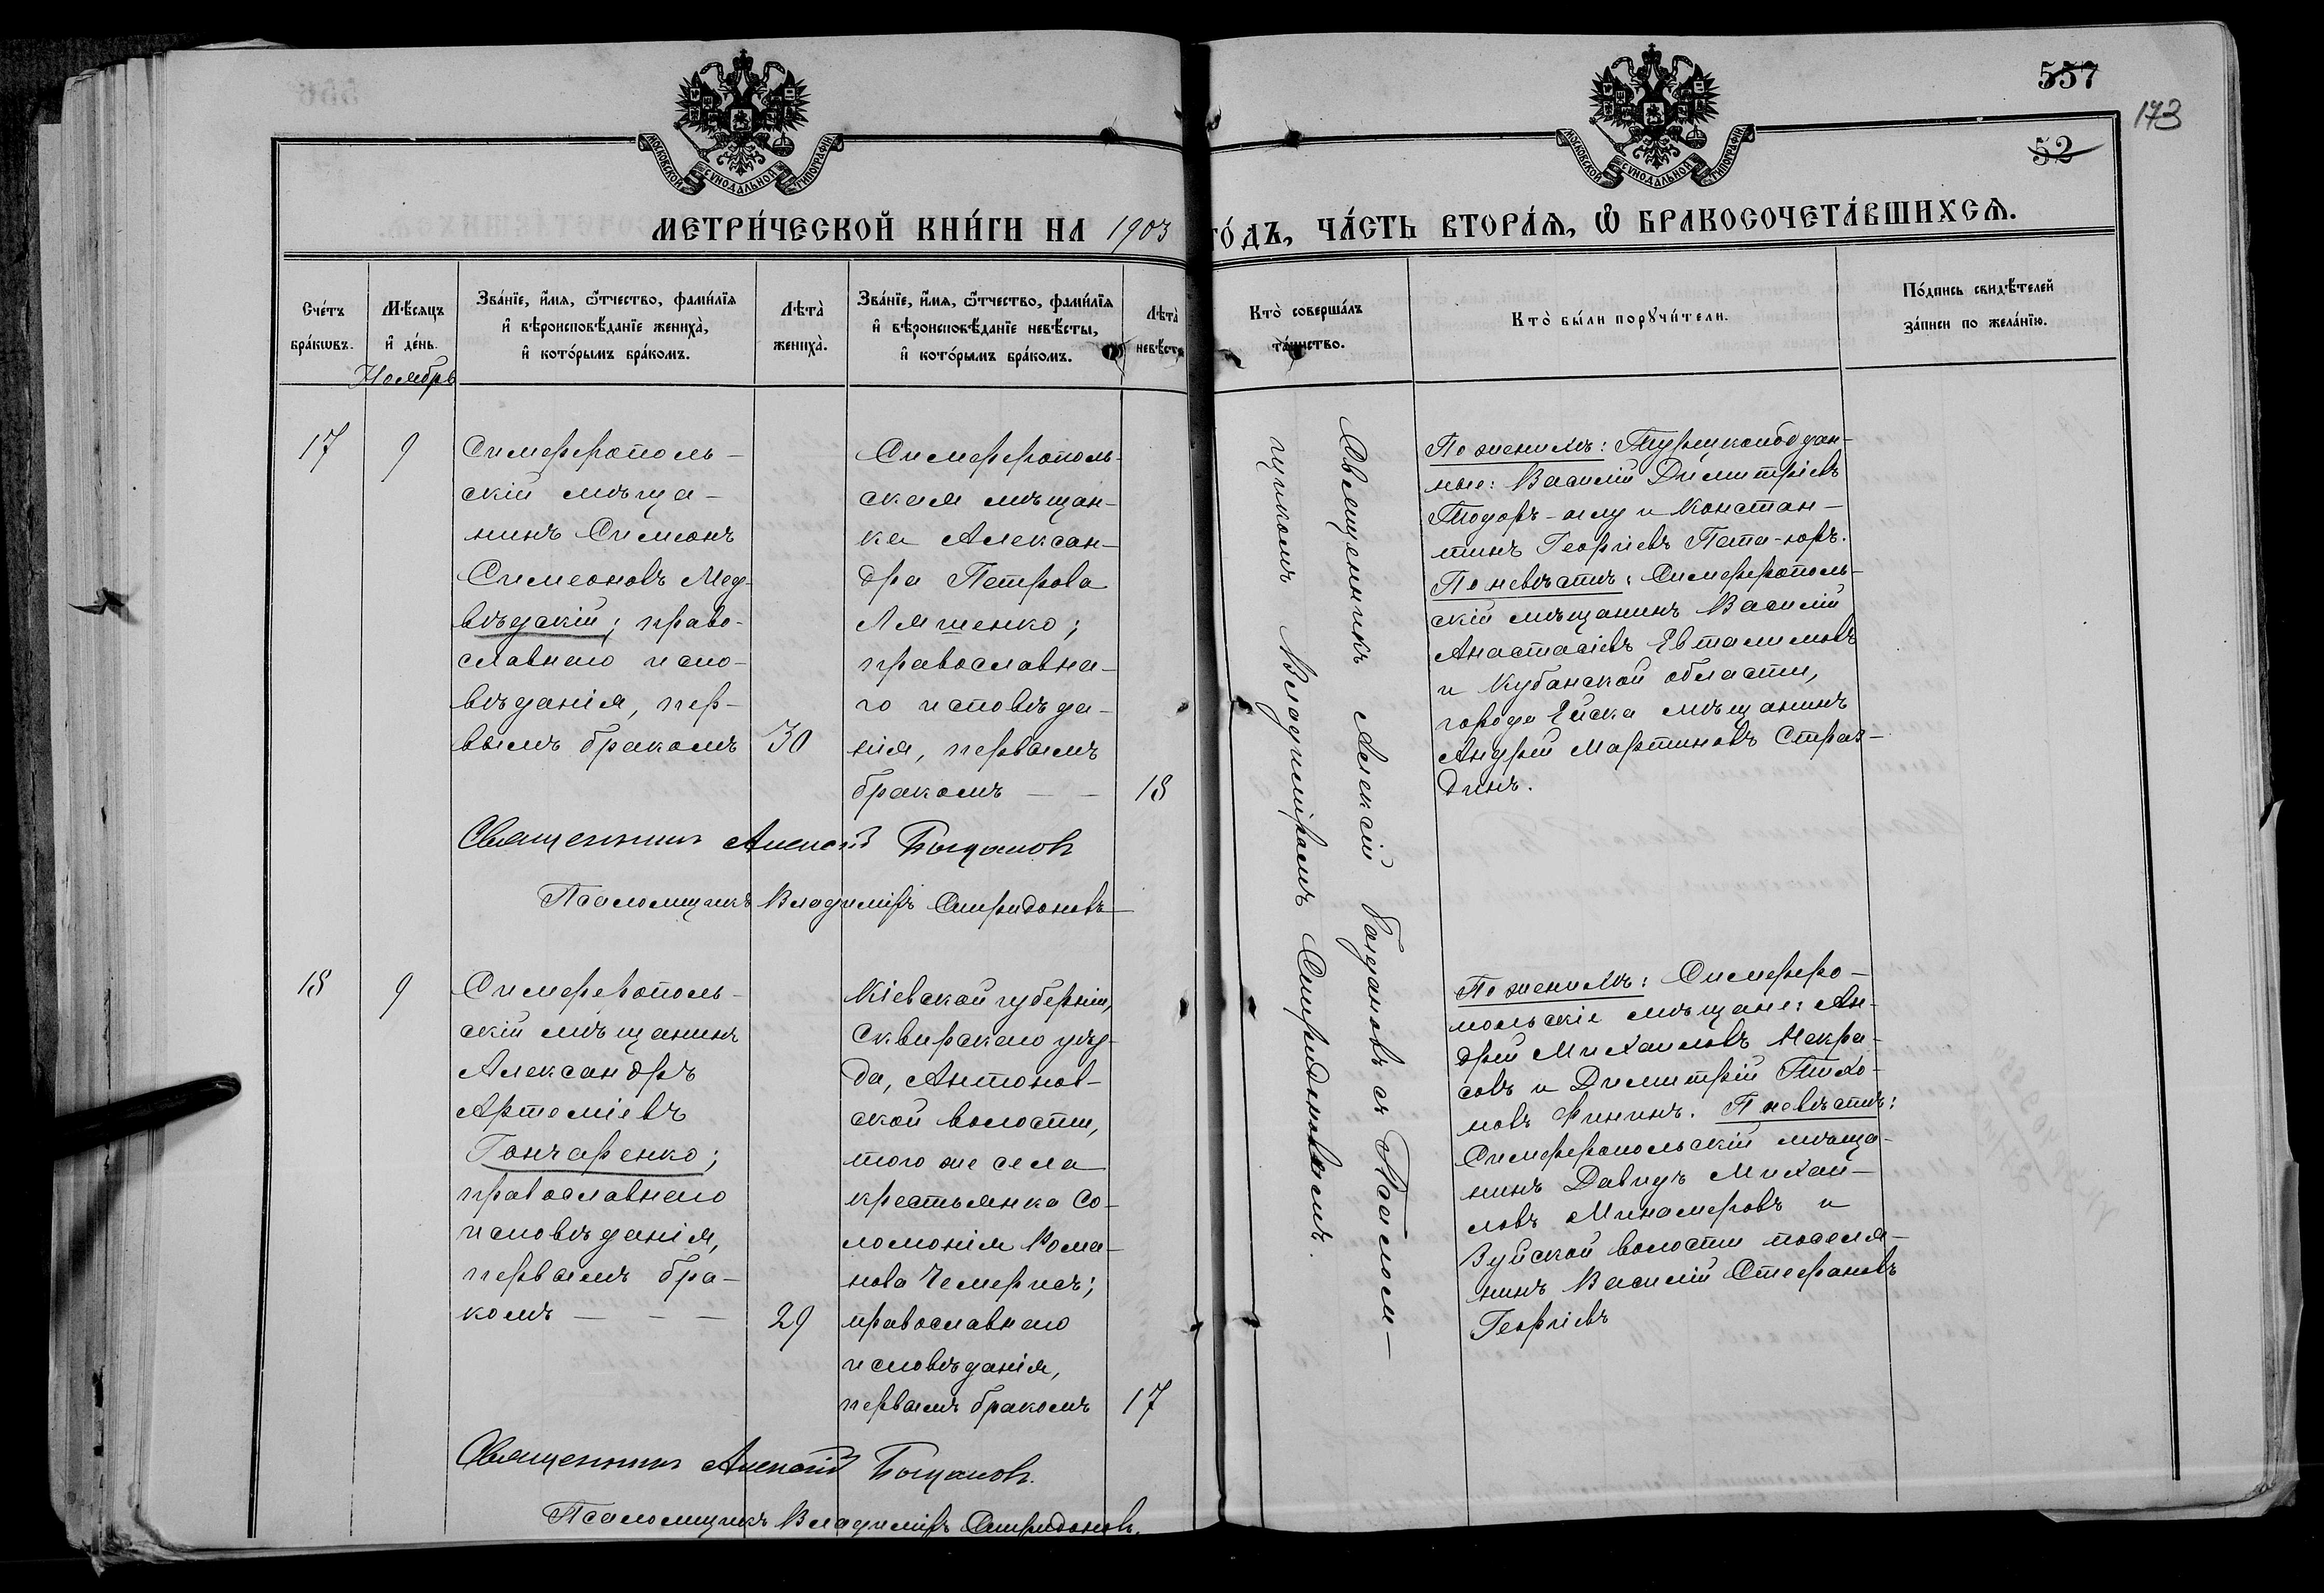 557
173
52
МОСКОВСКОЙ СѴНОДАЛЬНОЙ ТИПОГРАФІИ
МОСКОВСКОЙ СѴНОДАЛЬНОЙ ТИПОГРАФІИ
МЕТРИ́ЧЕСКОЙ КНИ́ГИ НА 1903 ГО́ДЪ, ЧА́СТЬ ВТОРА́Ѧ, Ѽ БРАКОСОЧЕТА́ВШИХСѦ.
Сче́тъ
бра́кωвъ.
Мѣ́сяцъ
и҆ де́нь.
Зва́нїе, и҆́мя, ѻ҆́тчество, фами́лїя
и҆ вѣроисповѣ́данїе жениха̀,
и҆ кото́рымъ бра́комъ.
Лѣта̀
жениха̀.
Зва́нїе, и҆́мя, ѻ҆́тчество, фами́лїя
и҆ вѣроисповѣ́данїе невѣ́сты,
и҆ кото́рымъ бра́комъ.
Лѣта̀
невѣ́сты
Кто̀ соверша́лъ
та́инство.
Кто̀ бы́ли порꙋчи́тели.
По́дпись свидѣ́телей
за́писи по жела́нїю.
Ноябрь
17
9
Симферополь-
скій мѣща-
нинъ Симеонъ
Симеоновъ Мед-
вѣдскій; право-
славнаго испо-
вѣданія, пер-
вымъ бракомъ
30
Симферополь-
ская мѣщан-
ка Алексан-
дра Петрова
Ляшенко;
православна-
го исповѣда-
нія, первымъ
бракомъ — —
18
Священникъ Алексій Богдановъ съ Псалом-
щикомъ Владиміромъ Спиридоновымъ.
По женихѣ: Турецкоподдан-
ные: Василій Димитріевъ
Тодоръ-оглу и Констан-
тинъ Георгіевъ Пата-юръ.
По невѣстѣ: Симферополь-
скій мѣщанинъ Василій
Анастасіевъ Евталимовъ
и Кубанской области,
города Ейска мѣщанинъ
Андрей Мартиновъ Страх-
динъ.
Священникъ Алексій Богдановъ
Псаломщикъ Владиміръ Спиридоновъ
18
9
Симферополь-
скій мѣщанинъ
Александръ
Артеміевъ
Гончаренко;
православнаго
исповѣданія,
первымъ бра-
комъ — — —
29
Кіевской губерніи,
Сквирскаго уѣз-
да, Антонов-
ской волости,
того же села
крестьянка Со-
ломонія Рома-
нова Чемерисъ;
православнаго
исповѣданія,
первымъ бракомъ
17
По женихѣ: Симферо-
польскіе мѣщане: Ан-
дрей Михаиловъ Некра-
совъ и Димитрій Тихо-
новъ Фининъ. П невѣстѣ:
Симферопольскій мѣща-
нинъ Давидъ Михаи-
ловъ Минамеровъ и
Зуйской волости поселя-
нинъ Василій Стефановъ
Георгіевъ
Священникъ Алексій Богдановъ.
Псаломщикъ Владиміръ Спиридоновъ.